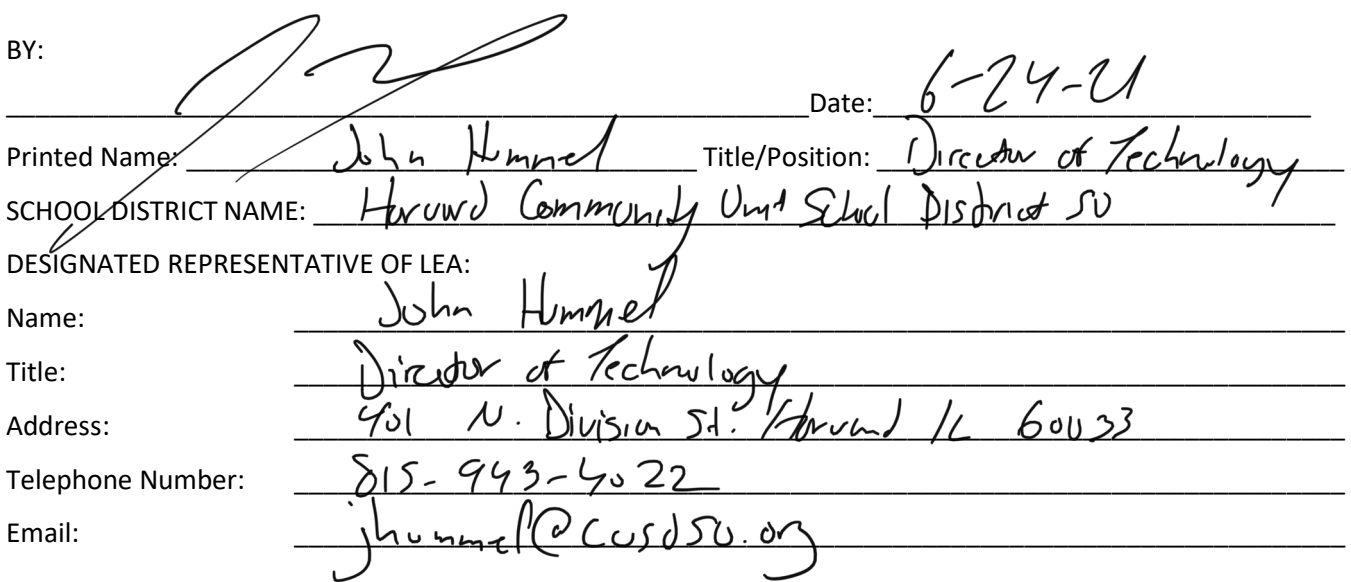 BY:
Date: 6-24-21
Printed Name: John Hummel Title/Position: Director of Technology
SCHOOL DISTRICT NAME: Harvard Community Unit School District 50
DESIGNATED REPRESENTATIVE OF LEA:
Name: John Hummel
Title: Director of Technology
Address: 401 N. Division St. Harvard IL 60033
Telephone Number: 815-943-4022
Email: jhummel@cusd50.org